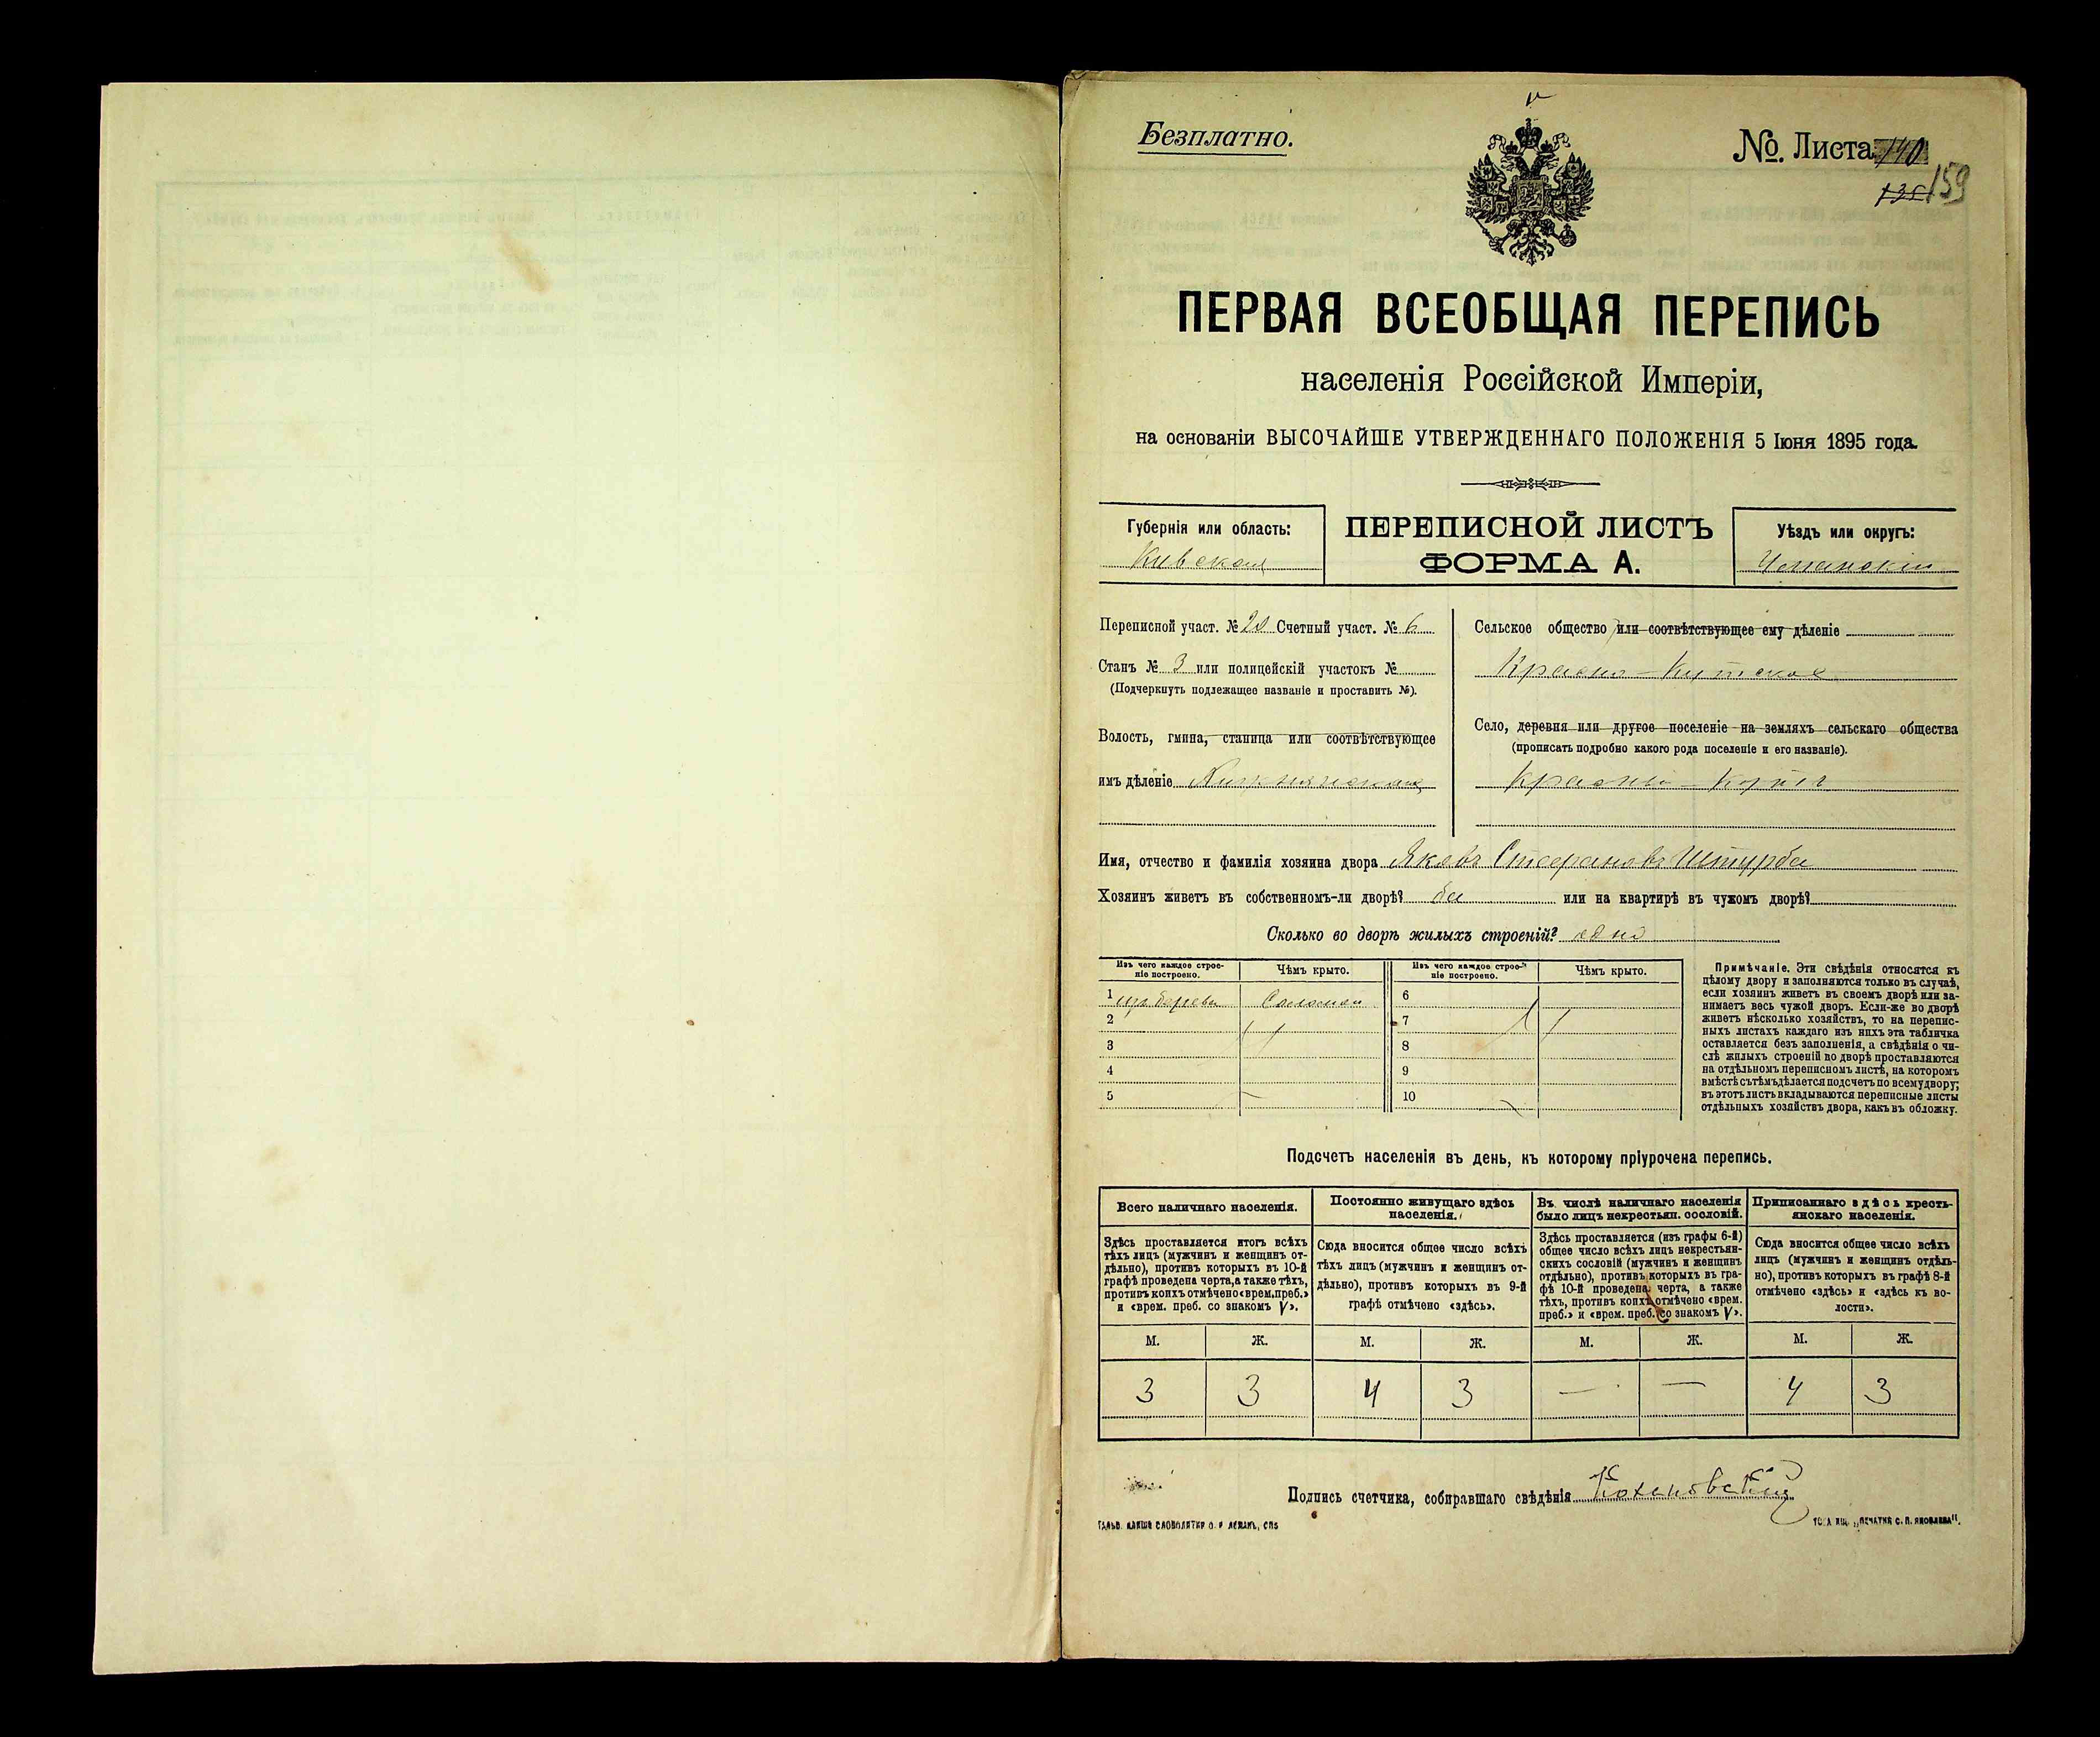 Безплатно.
№. Листа 140
159
ПЕРВАЯ ВСЕОБЩАЯ ПЕРЕПИСЬ
населенія Россійской Имперіи,
на основаніи ВЫСОЧАЙШЕ УТВЕРЖДЕННАГО ПОЛОЖЕНІЯ 5 Іюня 1895 года.
Губернія или область:
Кивская
ПЕРЕПИСНОЙ ЛИСТЪ
ФОРМА А.
Уѣздъ или округъ:
Уманскій
Переписной участ. № 20 Счетный участ. № 6
Станъ № 3 или полицейскій участокъ №
(Подчеркнуть подлежащее названіе и проставить №).
Волость, гмина, станица или соотвѣтствующее
имъ дѣленіе
Сельское общество или соотвѣтствующее ему дѣленіе
Красно-Кутское
Село, деревня или другое поселеніе на земляхъ сельскаго общества
(прописать подробно какого рода поселеніе и его названіе).
Имя, отчество и фамилія хозяина двора Яковъ Стефановъ Штурба
Хозяинъ живетъ въ собственномъ-ли дворѣ? да или на квартирѣ въ чужомъ дворѣ?
Сколько во дворѣ жилыхъ строеній? одно
Изъ чего каждое строеніе построено.
Чѣмъ крыто.
Изъ чего каждое строеніе построено.
Чѣмъ крыто.
1 изъ дерева Соломой
2
3
4
5
6
7
8
9
10
Примѣчаніе. Эти свѣдѣнія относятся къ
цѣлому двору и заполняются только въ случаѣ,
если хозяинъ живетъ въ своемъ дворѣ или за-
нимаетъ весь чужой дворъ. Если-же во дворѣ
живетъ нѣсколько хозяйствъ, то на перепис-
ныхъ листахъ каждаго изъ нихъ эта табличка
оставляется безъ заполненія, а свѣдѣнія о чи-
слѣ жилыхъ строеній во дворѣ проставляются
на отдѣльномъ переписномъ листѣ, на которомъ
вмѣстѣ съ тѣмъ дѣлается подсчетъ по всему двору;
въ этотъ листъ вкладываются переписные листы
отдѣльныхъ хозяйствъ двора, какъ въ обложку.
Подсчетъ населенія въ день, къ которому пріурочена перепись.
Всего наличнаго населенія.
Здѣсь проставляется итогъ всѣхъ
тѣхъ лицъ (мужчинъ и женщинъ от-
дѣльно), противъ которыхъ въ 10-й
графѣ проведена черта, а также тѣхъ,
противъ коихъ отмѣчено «врем. преб.»
и «врем. преб. со знакомъ V».
Постоянно живущаго здѣсь
населенія.
Сюда вносится общее число всѣхъ
тѣхъ лицъ (мужчинъ и женщинъ от-
дѣльно), противъ которыхъ въ 9-й
графѣ отмѣчено «здѣсь».
Въ числѣ наличнаго населенія
было лицъ некрестьян. сословій.
Здѣсь проставляется (изъ графы 6-й)
общее число всѣхъ лицъ некрестьян-
скихъ сословій (мужчинъ и женщинъ
отдѣльно), противъ которыхъ въ гра-
фѣ 10-й проведена черта, а также
тѣхъ, противъ коихъ отмѣчено «врем.
преб.» и «врем. преб. со знакомъ V».
Приписаннаго здѣсь кресть-
янскаго населенія.
Сюда вносится общее число всѣхъ
лицъ (мужчинъ и женщинъ отдѣль-
но), противъ которыхъ въ графѣ 8-й
отмѣчено «здѣсь» и «здѣсь къ во-
лости».
М. Ж. М. Ж. М. Ж. М. Ж.
3 3 4 3 — — 4 3
Подпись счетчика, собиравшаго свѣдѣнія Кохановскій